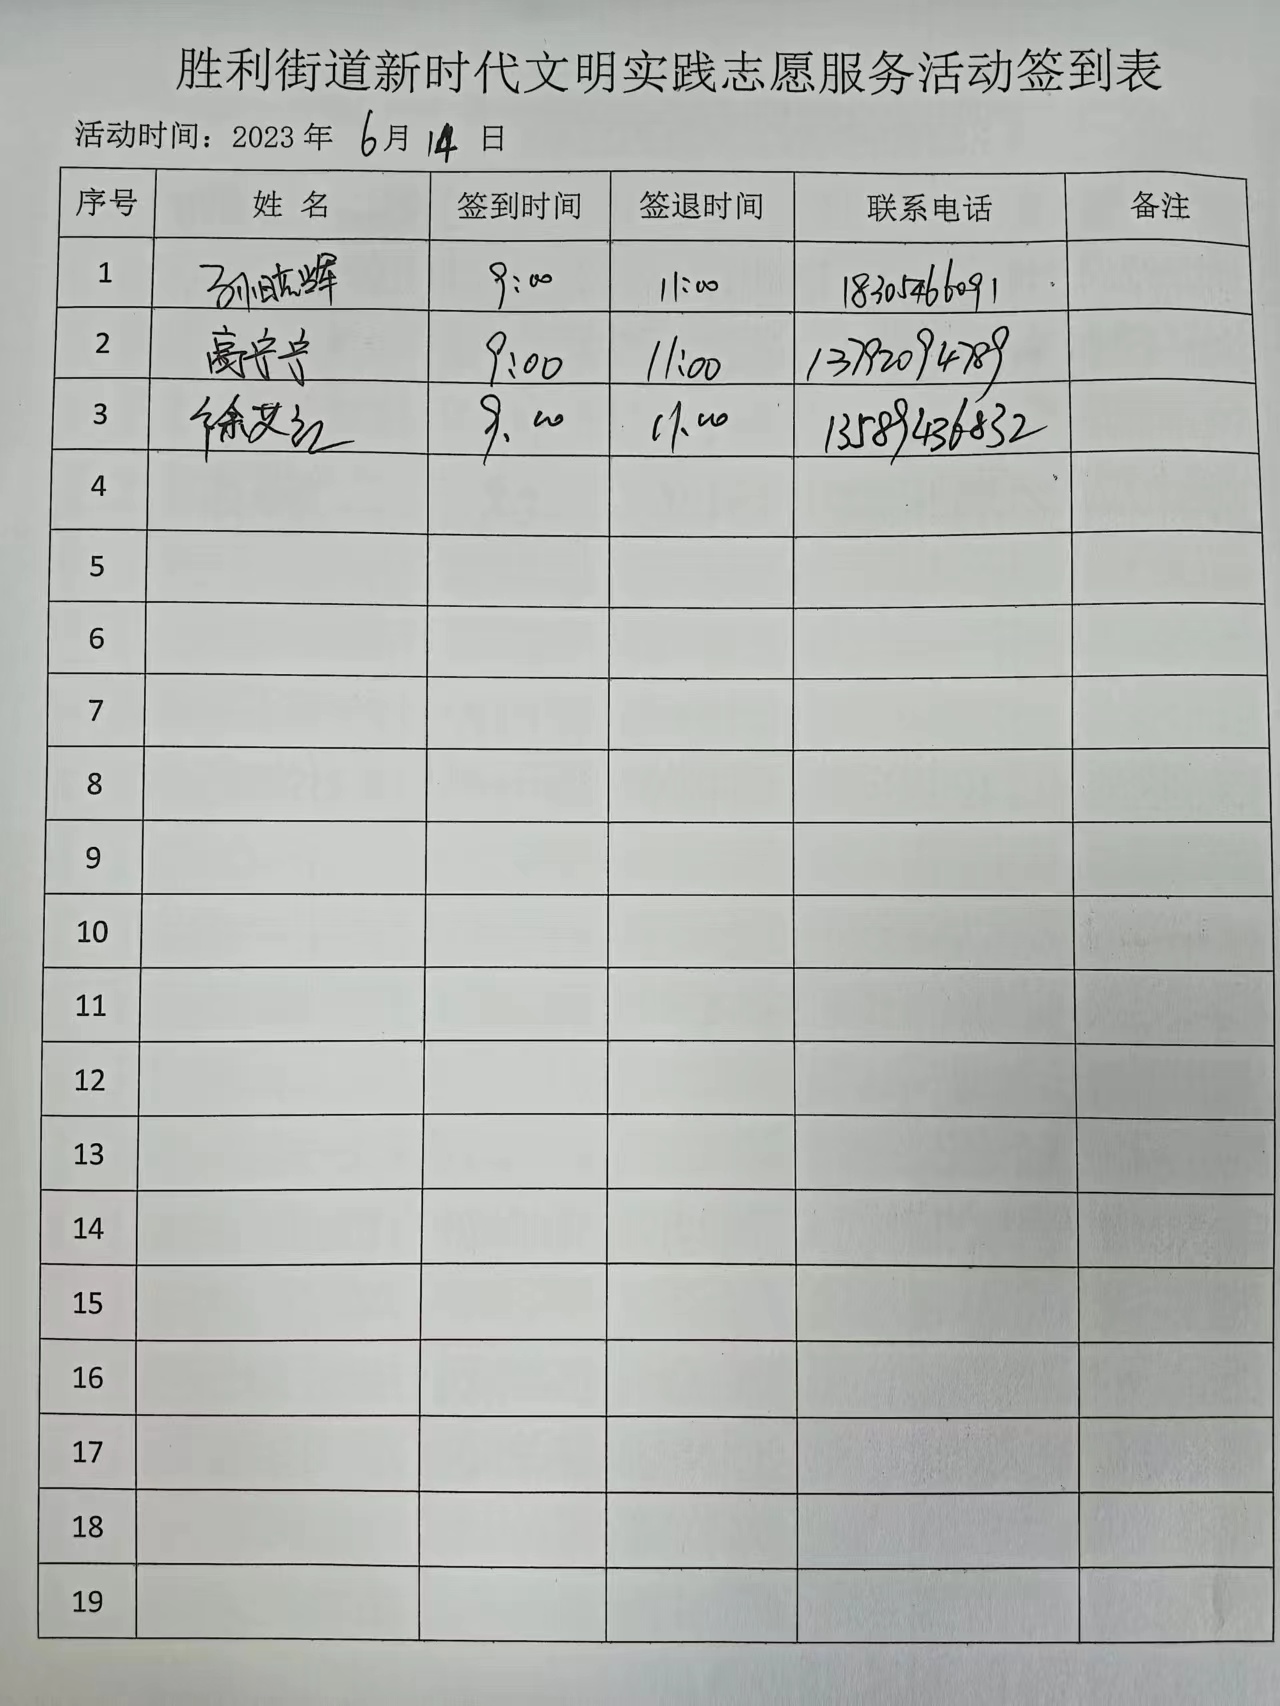 胜利街道新时代文明实践志愿服务活动签到表
活动时间：2023 年 6月 14 日
序号 姓 名 签到时间 签退时间 联系电话 备注
1 孙皓辉 9:00 11:00 18305466091
2 高宁宁 9:00 11:00 13792094789
3 徐艾红 9:00 11:00 13589436832
4
5
6
7
8
9
10
11
12
13
14
15
16
17
18
19